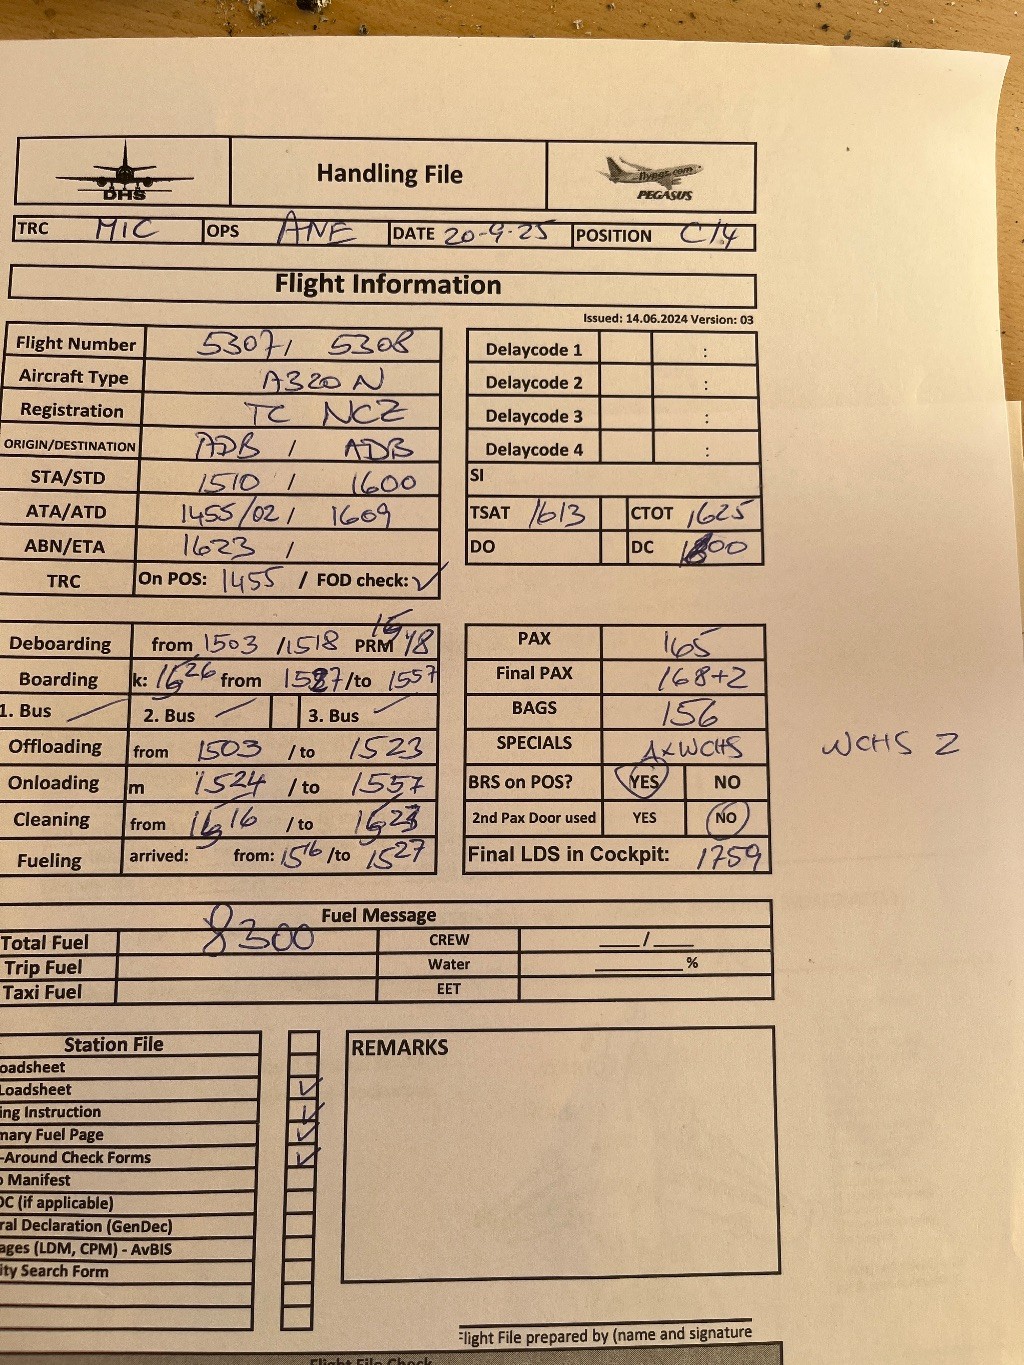 DHS
Handling File
flypgs.com
PEGASUS
TRC MIC OPS ANE DATE 20-9-25 POSITION C14
Flight Information
Issued: 14.06.2024 Version: 03
Flight Number 5307 / 5308
Aircraft Type A320N
Registration TC NCZ
ORIGIN/DESTINATION ADB / ADB
STA/STD 1510 / 1600
ATA/ATD 1455/02 / 1609
ABN/ETA 1623 /
TRC On POS: 1455 / FOD check: ✓
Delaycode 1 :
Delaycode 2 :
Delaycode 3 :
Delaycode 4 :
SI
TSAT 1613 CTOT 1625
DO DC 1800
Deboarding from 1503 / 1518 PRM
Boarding k: from 1527 /to 1557
1. Bus 2. Bus 3. Bus
Offloading from 1503 / to 1523
Onloading m 1524 / to 1557
Cleaning from / to
Fueling arrived: from: 1516 /to 1527
PAX 165
Final PAX 168+2
BAGS 156
SPECIALS WCHS WCHS 2
BRS on POS? YES NO
2nd Pax Door used YES NO
Final LDS in Cockpit: 1759
Fuel Message
Total Fuel 8300 CREW ___/___
Trip Fuel Water ______%
Taxi Fuel EET
Station File
oadsheet
Loadsheet ✓
ing Instruction ✓
mary Fuel Page ✓
-Around Check Forms ✓
o Manifest
OC (if applicable)
ral Declaration (GenDec)
ages (LDM, CPM) - AvBIS
ity Search Form
REMARKS
Flight File prepared by (name and signature
Flight File Check